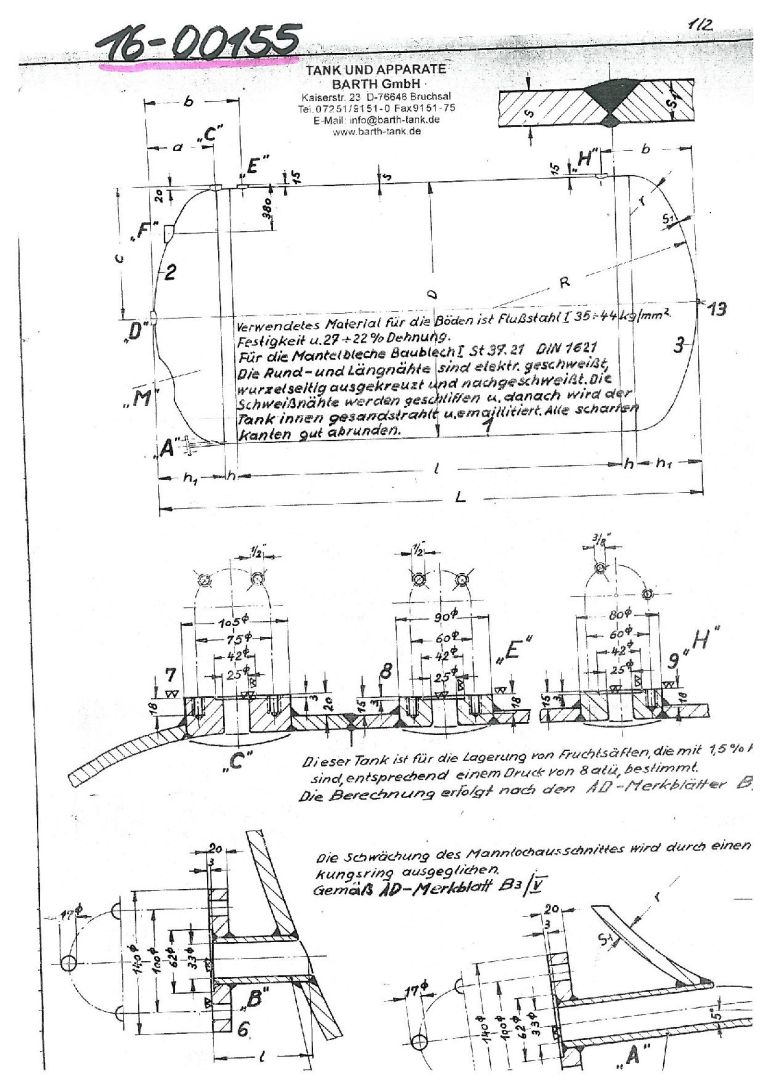 16-00155
1/2
TANK UND APPARATE
BARTH GmbH
Kaiserstr. 23 D-76646 Bruchsal
Tel. 07251/9151-0 Fax 9151-75
E-Mail: info@barth-tank.de
www.barth-tank.de
b
"C"
a
"E"
15
s
15
"H"
b
s
S1
20
380
"F"
c
2
r
S1
R
D
13
"D"
3
"M"
"A"
Verwendetes Material für die Böden ist Flußstahl I 35÷44 kg/mm²
Festigkeit u. 27÷22 % Dehnung.
Für die Mantelbleche Baublech I St 37.21 DIN 1621
Die Rund- und Längnähte sind elektr. geschweißt,
wurzelseitig ausgekreuzt und nachgeschweißt. Die
Schweißnähte werden geschliffen u. danach wird der
Tank innen gesandstrahlt u. emaillitiert. Alle scharfen
Kanten gut abrunden.
1
h1 h l h h1
L
1/2" 1/2" 3/8"
105φ 90φ 80φ
75φ 60φ 60φ
42φ 42φ 42φ
25φ 25φ 25φ
7 8 "E" 9 "H"
18 3 20 15 3 18 15 3 18
"C"
Dieser Tank ist für die Lagerung von Fruchtsäften, die mit 1,5 %
sind, entsprechend einem Druck von 8 atü, bestimmt.
Die Berechnung erfolgt nach den AD-Merkblätter B
Die Schwächung des Mannlochausschnittes wird durch einen
kungsring ausgeglichen.
Gemäß AD-Merkblatt B3/V
20
3
17φ
140φ
100φ
62φ
33φ
"B"
6
l
20
3
r
S1
17φ
140φ
100φ
62φ
33φ
5°
"A"